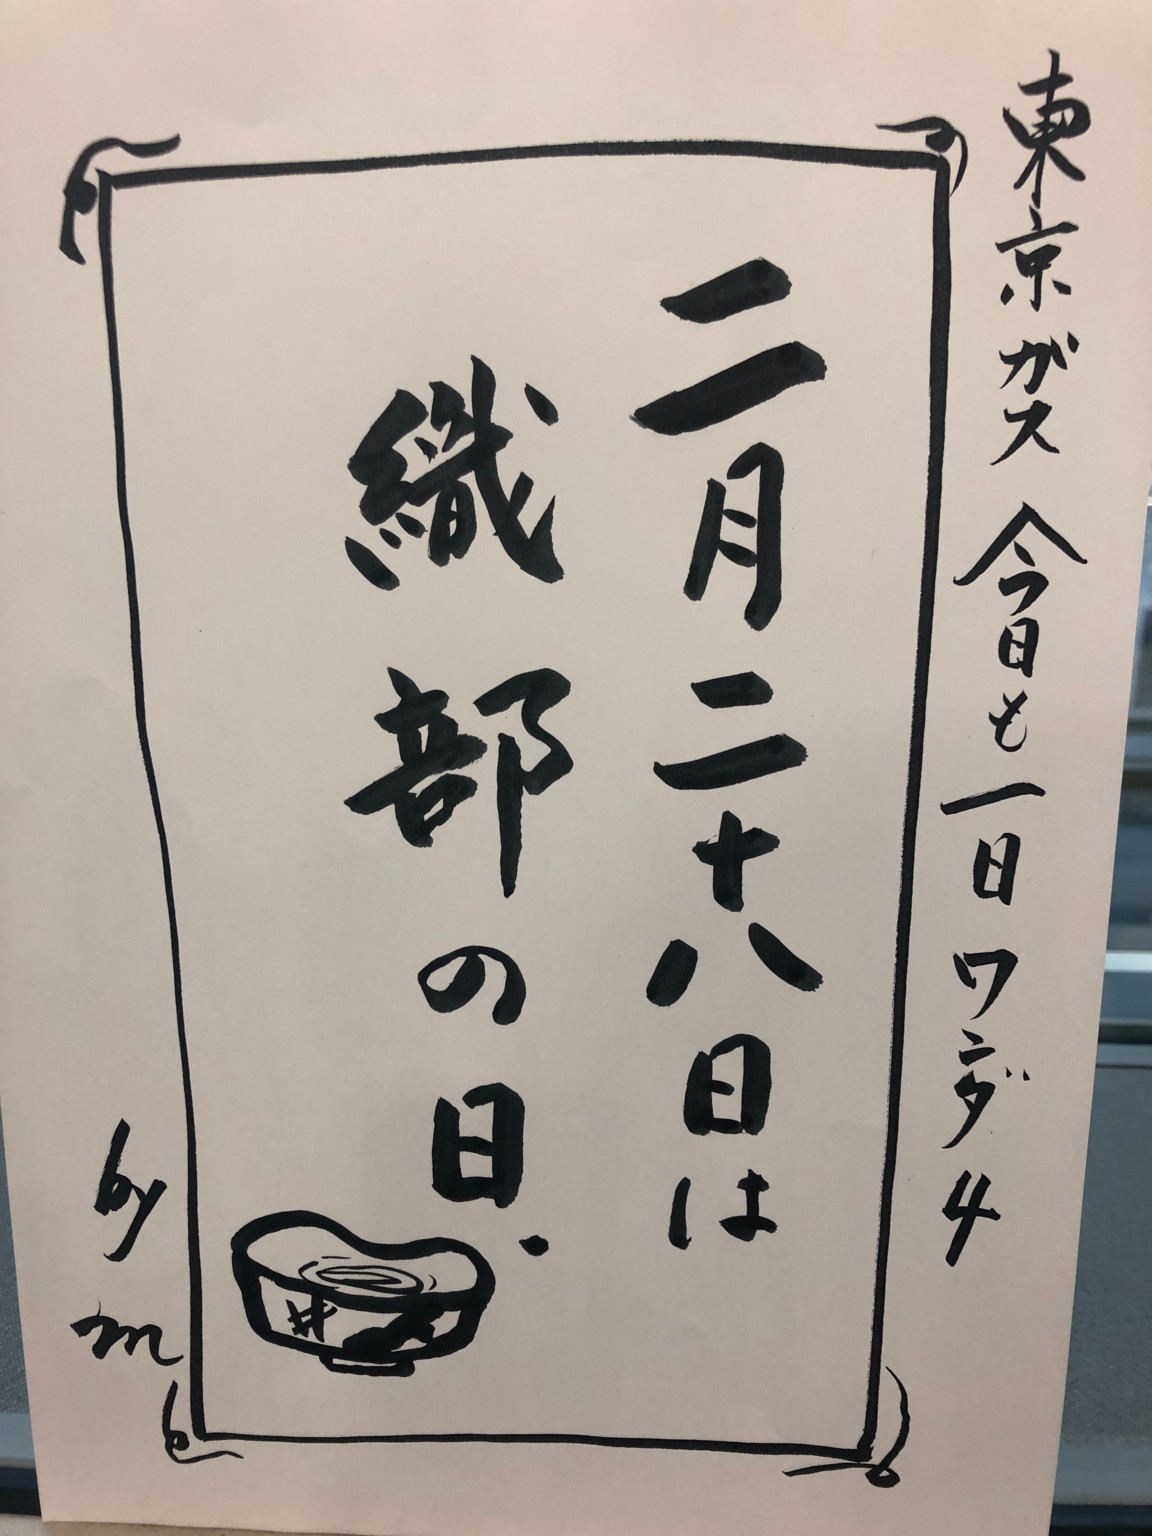 東京ガス 今日も一日 ワンダ4
二月二十八日は
織部の日.
by m